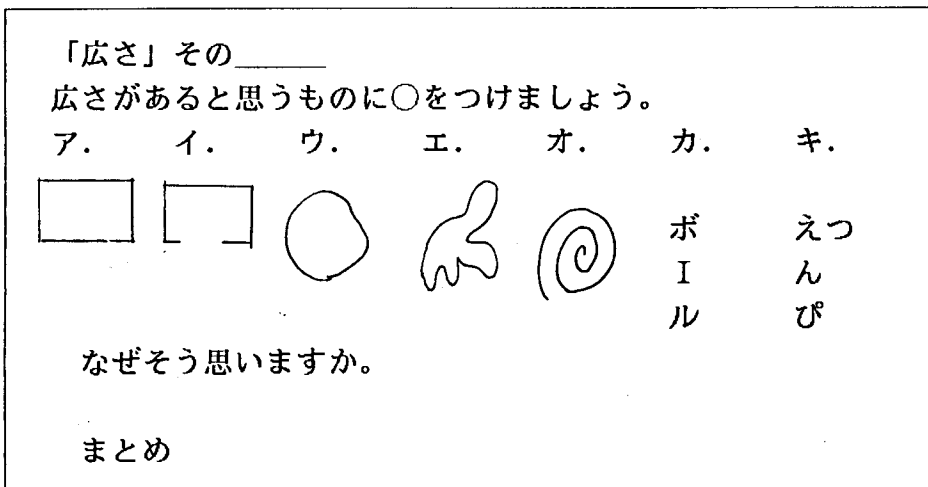 「広さ」その______
広さがあると思うものに○をつけましょう。
ア. イ. ウ. エ. オ. カ. キ.
ボ えつ
I ん
ル ぴ
なぜそう思いますか。
まとめ